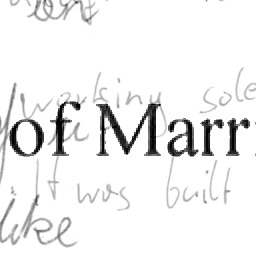 working sole
of Marri
It was built
like